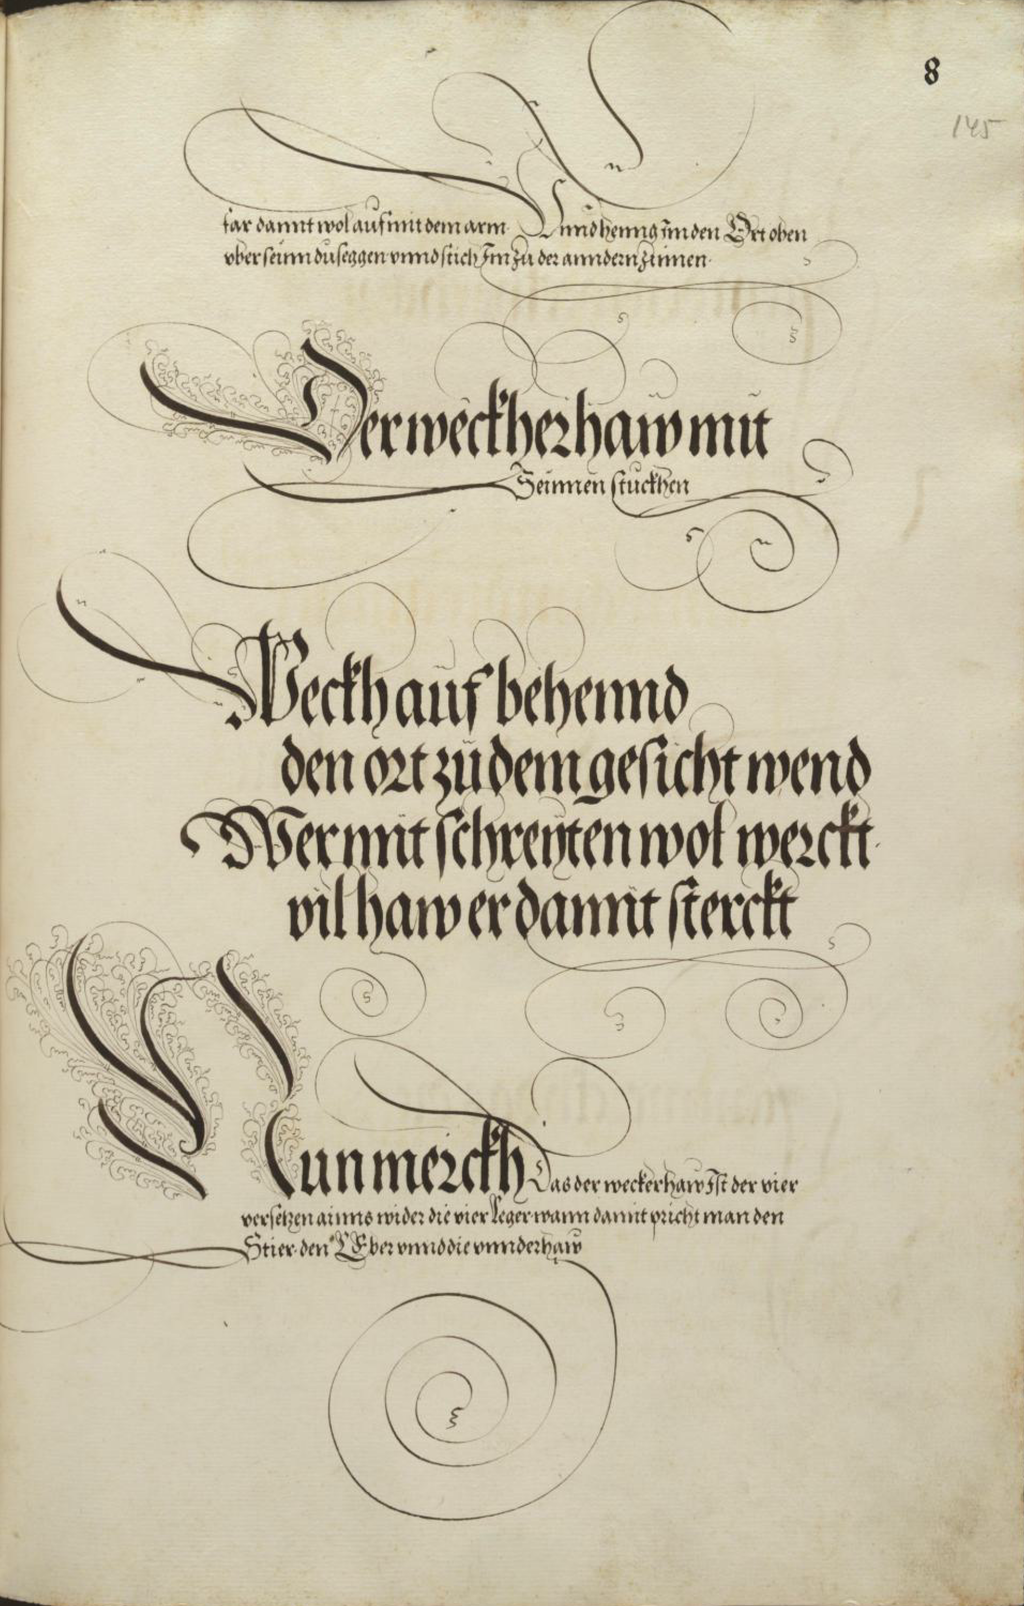 8
145
far damit wol auf mit dem arm Unnd henng im den Ort oben
vber seinn duseggen vnnd stich Im zu der anndern zinnen
Der weckherhaw mit
Seinnen stuckhen
Weckh auf behennd
den ort zu dem gesicht wend
Wer mit schreyten wol werckt
vil haw er damit sterckt
Nun merckh Das der weckerhaw Ist der vier
versetzen ainns wider die vier Leger wann damit pricht man den
Stier den Eber vnnd die vnnderhaw